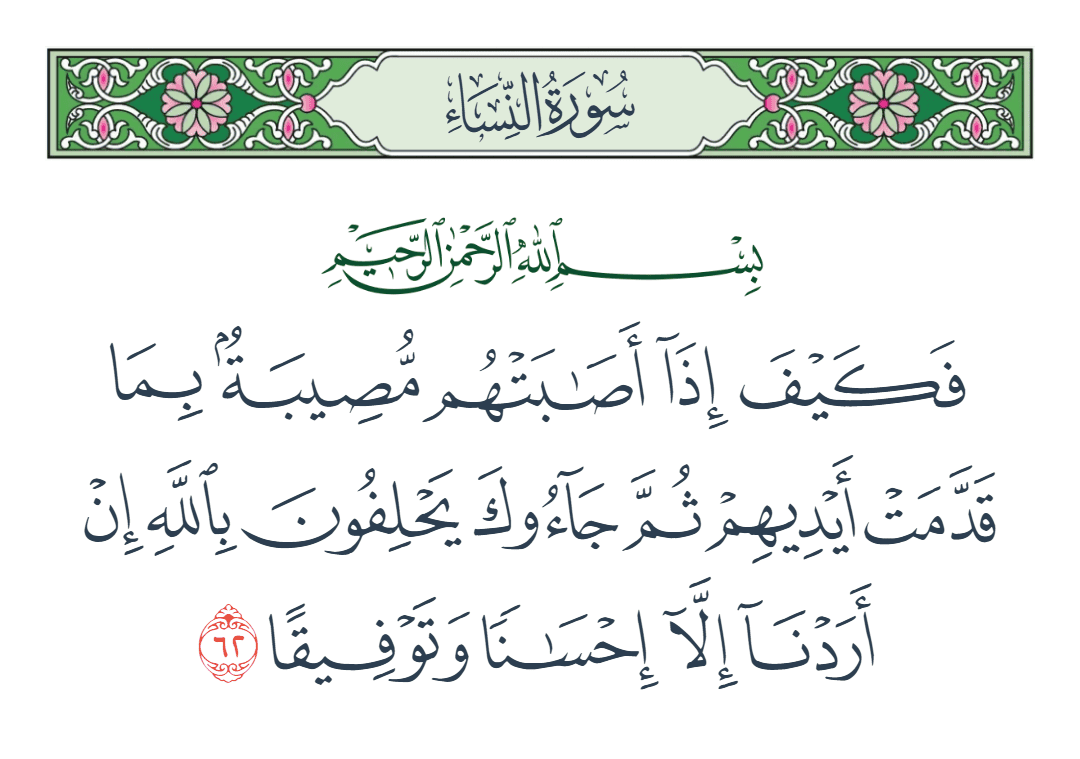 سُورَةُ النِّسَاءِ
بِسْمِ ٱللَّهِ ٱلرَّحْمَٰنِ ٱلرَّحِيمِ
فَكَيْفَ إِذَآ أَصَـٰبَتْهُم مُّصِيبَةٌۢ بِمَا
قَدَّمَتْ أَيْدِيهِمْ ثُمَّ جَآءُوكَ يَحْلِفُونَ بِٱللَّهِ إِنْ
أَرَدْنَآ إِلَّآ إِحْسَـٰنًا وَتَوْفِيقًا ٦٢